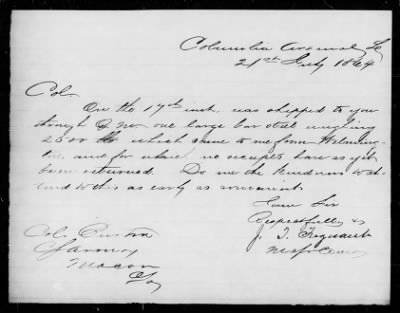 Columbia Arsenal
21st July 1864
Col.
On the 19th inst. was shipped to you
through Q Mr one large bar steel weighing
2500 lbs which came to me from Wilming-
ton, and for which no receipts have as yet
been returned. Do me the kindness to at-
tend to this as early as convenient.
I am Sir
Respectfully
J. T.
Col.
Armory
Macon
Ga